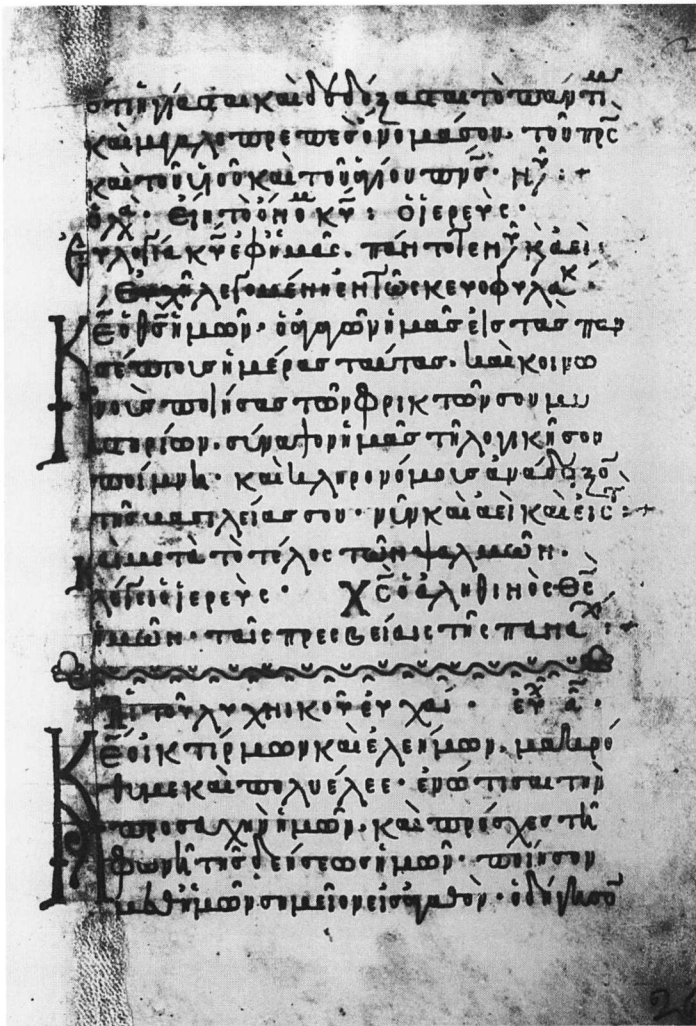 ὅτι ηὐγίασται καὶ δεδόξασται τὸ πάντιμ
καὶ μεγαλοπρεπὲς ὄνομά σου· τοῦ πρς
καὶ τοῦ υἱοῦ καὶ τοῦ ἁγίου πνς· νῦ:+
ὁ χο· Εἴη τὸ ὄνομ κυ: ὁ ἱερεύς·
Εὐλογία κυ ἐφ' ἡμᾶς. πάντοτε νῦ κ ἀεί:
Εὐχὴ λεγομένη ἐν τῶ σκευοφυλακ·
Κε ὁ θς ἡμῶν· ὁ ἀγαγὼν ἡμᾶς εἰς τὰς παν
σέπτους ἡμέρας ταύτας. καὶ κοινω
νοὺς ποιήσας τῶν φρικτῶν σου μυ
στηρίων. σύναψον ἡμᾶς τῇ λογικῇ σου
ποίμνῃ· καὶ κληρονόμους ἀνάδειξο
τῆς βασιλείας σου· νῦν καὶ ἀεὶ καὶ εἰς τ:+
Καὶ μετὰ τὸ τέλος τῶν ψαλμῶν.
λέγει ὁ ἱερεύς· Χς ὁ ἀληθινὸς θς
ἡμῶν· ταῖς πρεσβείαις τῆς παναχ:+
τοῦ λυχνικοῦ εὐχαί· εὐχ α·
Κε οἰκτίρμων καὶ ἐλεήμων. μακρό
θυμε καὶ πολυέλεε· ἐνώτισαι τὴν
προσευχὴν ἡμῶν. καὶ πρόσχες τῇ
φωνῇ τῆς δεήσεως ἡμῶν· ποίησον
μεθ' ἡμῶν σημεῖον εἰς ἀγαθόν· ὁδήγησο